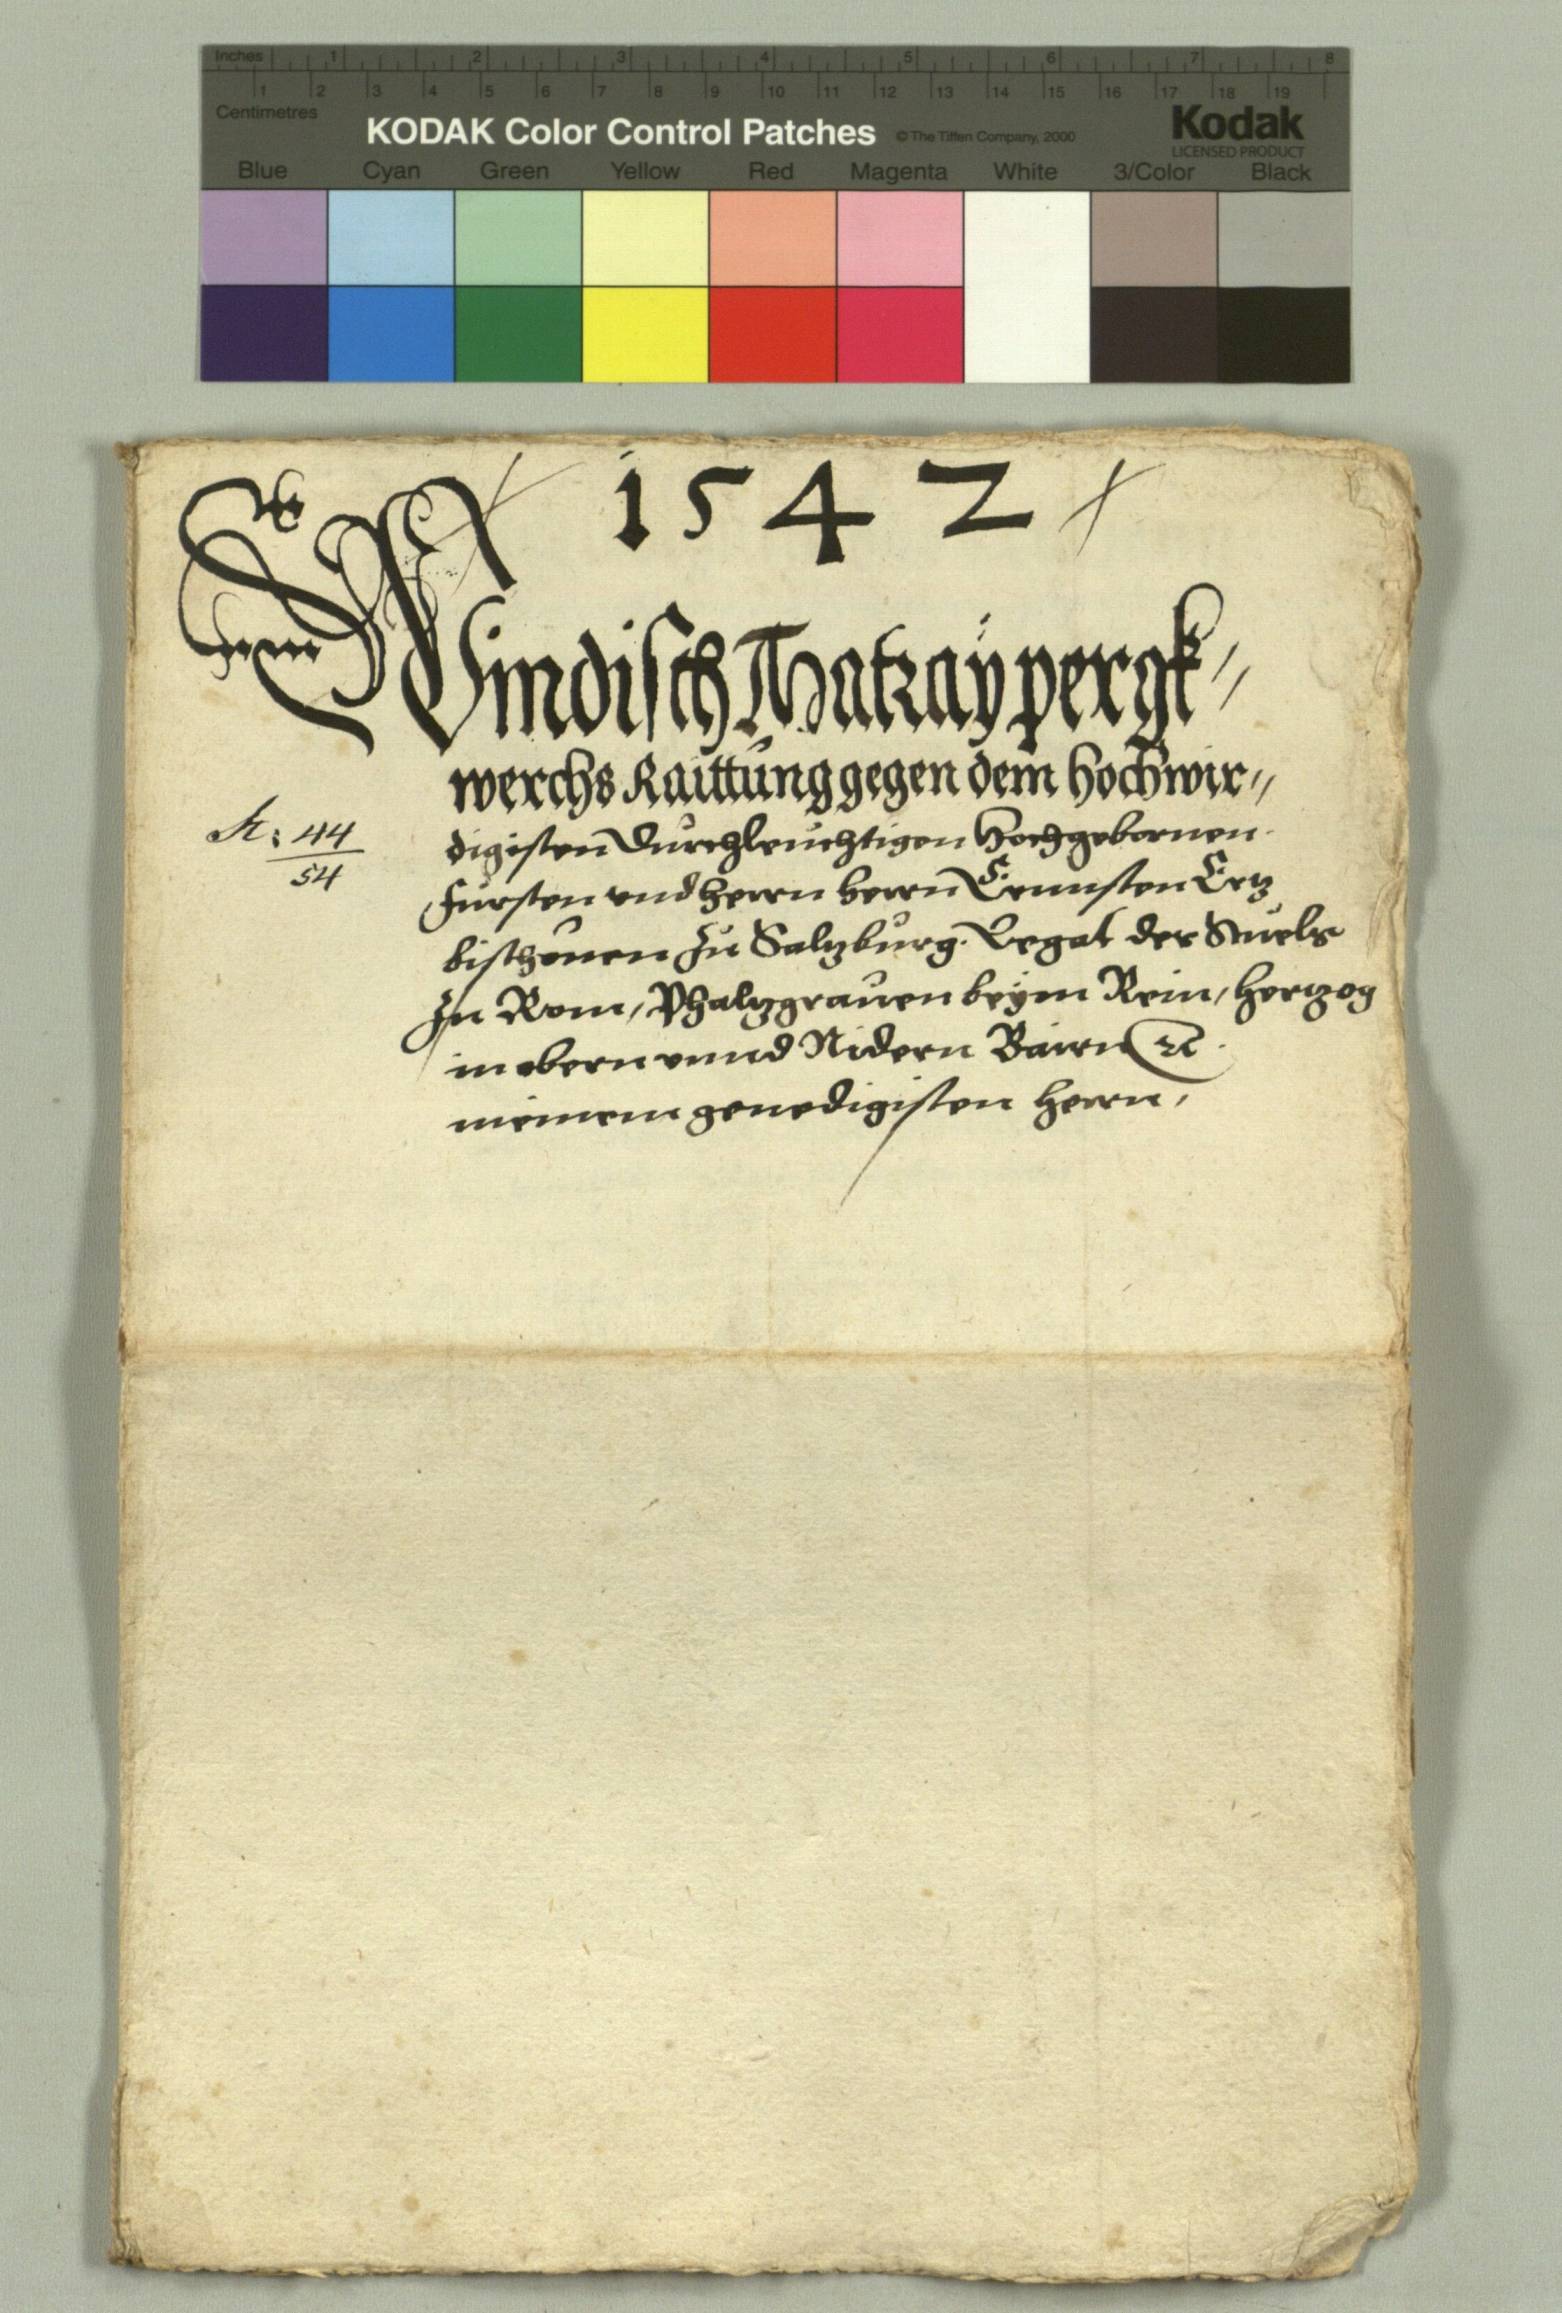 Inches 1 2 3 4 5 6 7 8
1 2 3 4 5 6 7 8 9 10 11 12 13 14 15 16 17 18 19
Centimetres
KODAK Color Control Patches © The Tiffen Company, 2000 Kodak
LICENSED PRODUCT
Blue Cyan Green Yellow Red Magenta White 3/Color Black
1542
Windisch Matray pergk〃
werchs Raittung gegen dem hochwir〃
digisten Durchleuchtigen Hochgebornen
Fürsten vnd herrn herrn Ernnsten Ertz
bischouen zu Saltzburg. Legat des Stuels
zu Rom, Phaltzgrauen beÿm Rein, hertzog
in obern vnnd Nidern Bairn
meinem genedigisten herrn,
44
54